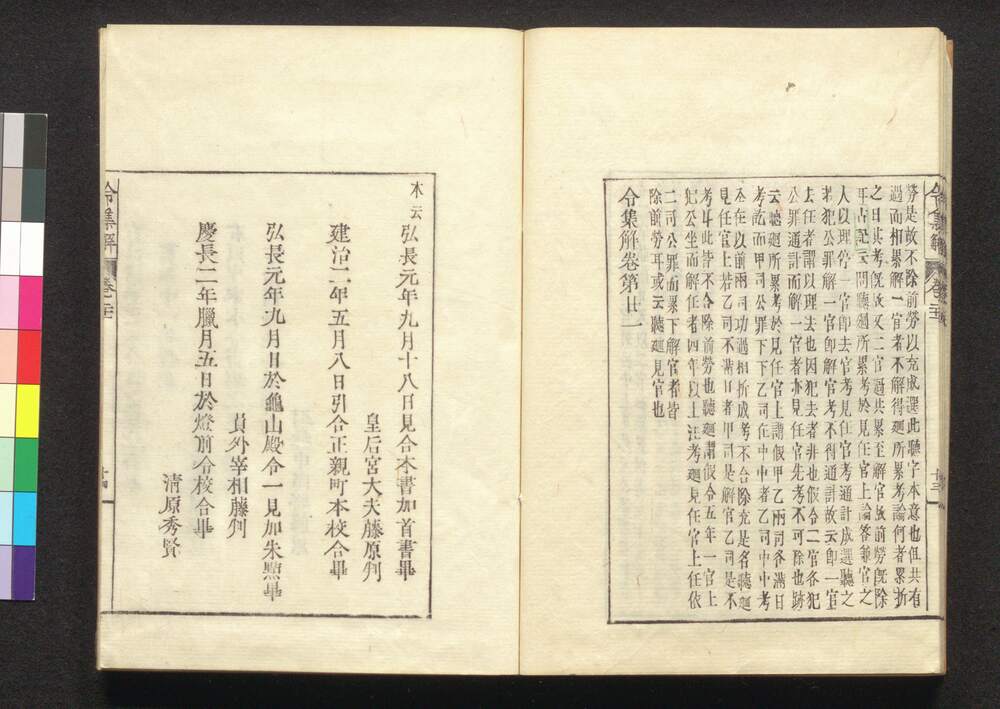 勞是故不除前勞以充成選此聽字本意也但共有
過而相累解一官者不解得廻所累考論何者累折
之日其考既放又二官過共累至解官放前勞既除
耳古記云問聽廻所累考於見任官上論答兼官之
人以理停一官即去官考見任官考通計成選聽之
求犯公罪解一官即解官考不得通計故云即一官
去任者謂以理去也因犯去者非也假令二官各犯
公罪通計而解一官者亦見任官先考不可除也跡
云聽廻所累考於見任官上謂假甲乙兩司各滿日
考訖而甲司公罪下下乙司在中中者乙司中中考
不在以前兩司功過相折成考不合除充是名聽廻
見任官上若乙司不滿日者甲司是解官乙司是不
考耳此皆不合除前勞也聽廻謂假令五年一官上
犯公坐而解任者四年以上注考廻見任官上任依
二司公罪而累下解官者皆
除前勞耳或云聽廻見官也
令集解卷第廿一
令集解 卷二十一 十三
本云
弘長元年九月十八日見合本書加首書畢
皇后宮大夫藤原判
建治二年五月八日引合正親町本校合畢
弘長元年九月日於龜山殿令一見加朱點畢
員外宰相藤判
慶長二年臘月五日於燈前令校合畢
清原秀賢
令集解 卷二十一 十四